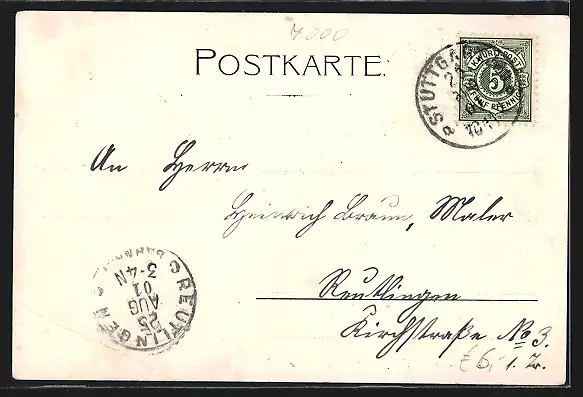 7000
POSTKARTE.
STUTTGART
K.WÜRTT.POST
5
FÜNF PFENNIG
An Herrn
Heinrich Braun, Maler
Reutlingen
Kirchstraße No 3.
1. Tr.
€ 6,-
REUTLINGEN
BAHNHOF
3-4N
25
AUG
01